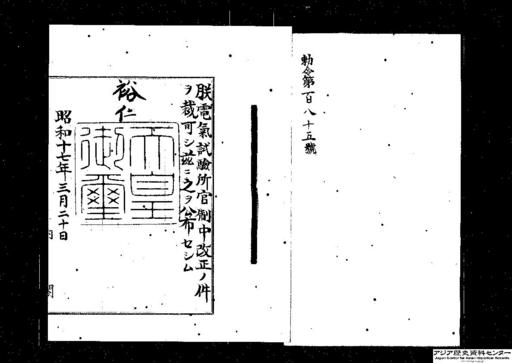 勅令第百八十五號
朕電氣試驗所官制中改正ノ件
ヲ裁可シ茲ニ之ヲ公布セシム
裕仁
天皇
御璽
昭和十七年三月二十日
内
閣
アジア歴史資料センター
Japan Center for Asian Historical Records